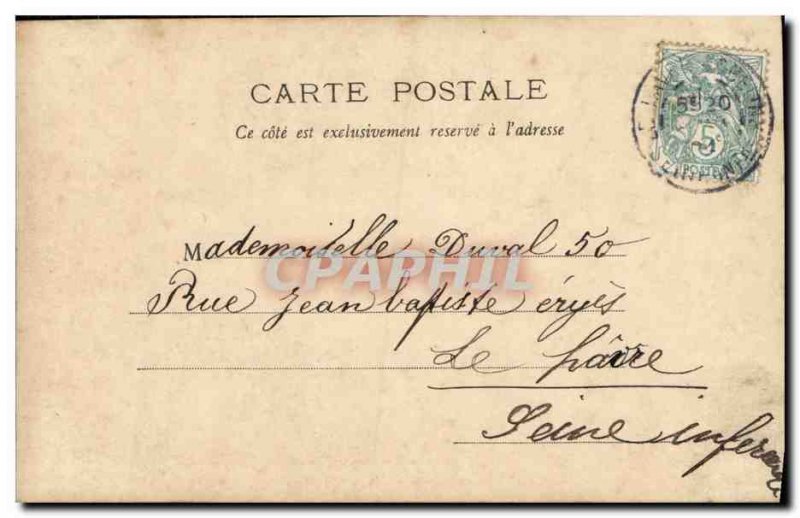 CARTE POSTALE
Ce côté est exclusivement reservé à l'adresse
5c
POSTES
Mademoiselle Duval 50
Rue Jean baptiste éryès
Le hâvre
Seine inférieure
CPAPHIL